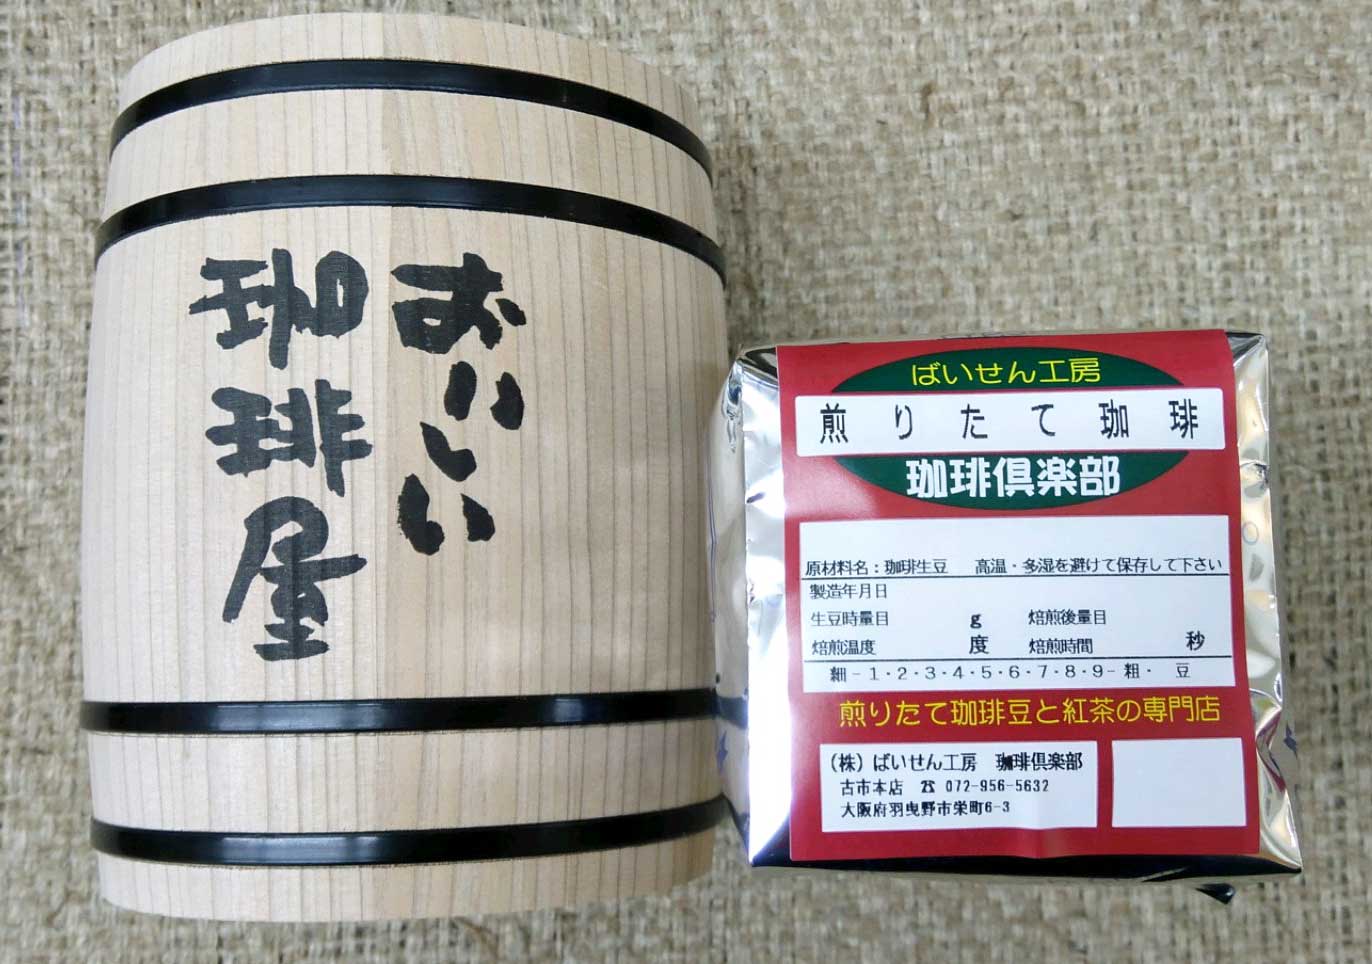 おいしい
珈琲屋
ばいせん工房
煎りたて珈琲
珈琲倶楽部
原材料名:珈琲生豆 高温・多湿を避けて保存して下さい
製造年月日
生豆時量目 g 焙煎後量目
焙煎温度 度 焙煎時間 秒
細-1・2・3・4・5・6・7・8・9-粗・ 豆
煎りたて珈琲豆と紅茶の専門店
(株)ばいせん工房 珈琲倶楽部
古市本店 ☎ 072-956-5632
大阪府羽曳野市栄町6-3